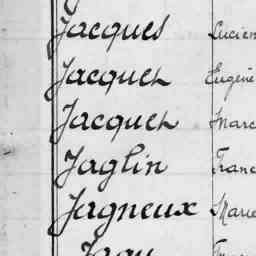 Jacques Lucien
Jacquet Eugène
Jacquet Marc
Jaglin Franc
Jagneux Marie
Jagu